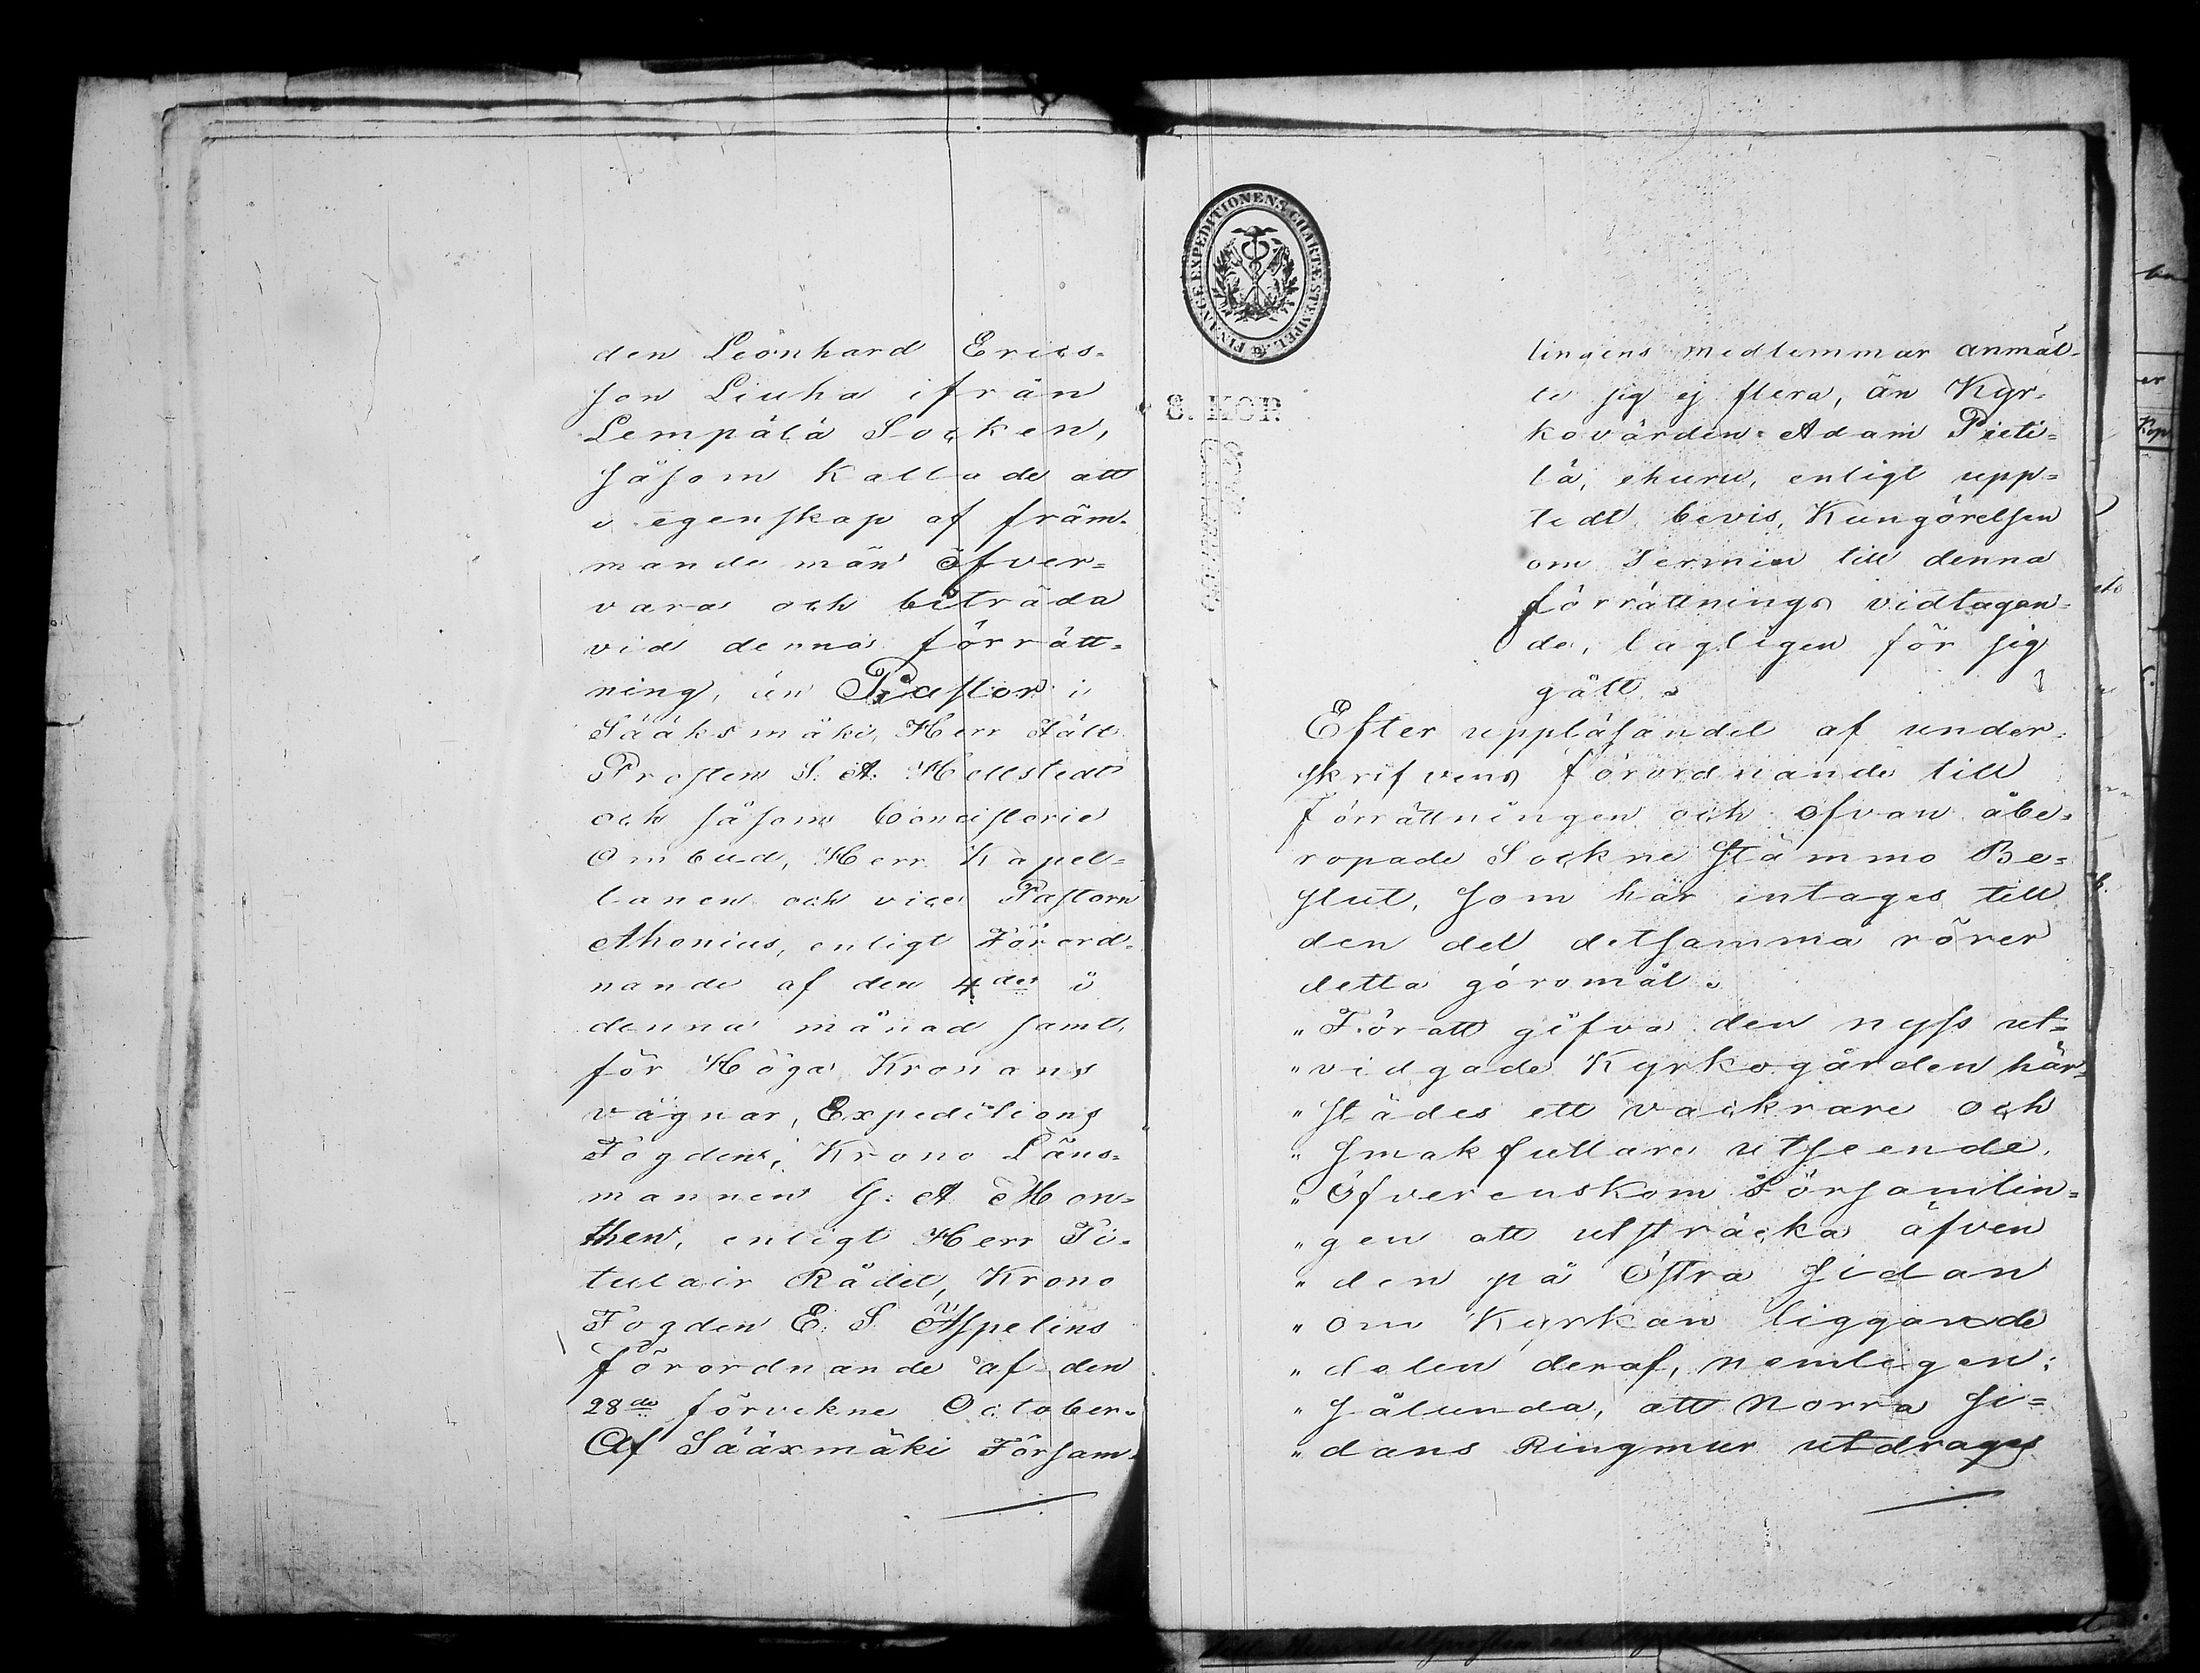 den Leonhard Erics-
son Liuha ifrån
Lempälä Socken,
såsom kallade att
i egenskap af främ-
mande män öfver-
vara och biträda
vid denna förrätt-
ning, än Pastor i
Sääksmäki, Herr Fält
Prosten S. A. Hellstedt
och såsom Concistorie
Ombud, Herr Kapel-
lanen och vice Pastorn
Ahonius, enligt Förord-
nande af den 4de i
denna månad samt,
för Höga Kronans
vägnar, Expeditions
Fogden, Krono Läns-
mannen G. A. Mon-
then, enligt Herr Ti-
tulair Rådet, Krono
Fogden E. S. Aspelins
förordnande af den
28de förvekne October.
Af Sääxmäki Försam-
FINANCE EXPEDITIONENS CHARTÆ STEMPEL
8. KOP.
lingens medlemmar anmäl-
te sig ej flera, än Kyr-
kovärden Adam Pieti-
lä, ehuru, enligt upp-
tedt bevis, Kungörelsen
om Termin till denna
förrättnings vidtagan-
de, lagligen för sig
gått.
Efter uppläsandet af under-
skrifvens förordnande till
förrättningen och ofvan åbe-
ropade Sockne Stämmo Be-
slut, som här intages till
den del detsamma rörer
detta göromål.
"För att gifva den nyss ut-
"vidgade Kyrkogården här-
"städes ett vackrare och
"smakfullare utseende,
"öfverenskom Församlin-
"gen att utsträcka äfven
"den på Östra sidan
"om Kyrkan liggande
"delen deraf, nemligen:
"sålunda, att Norra si-
"dans Ringmur utdrages